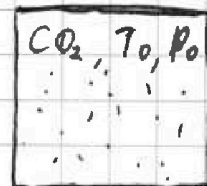 CO₂, T₀, P₀